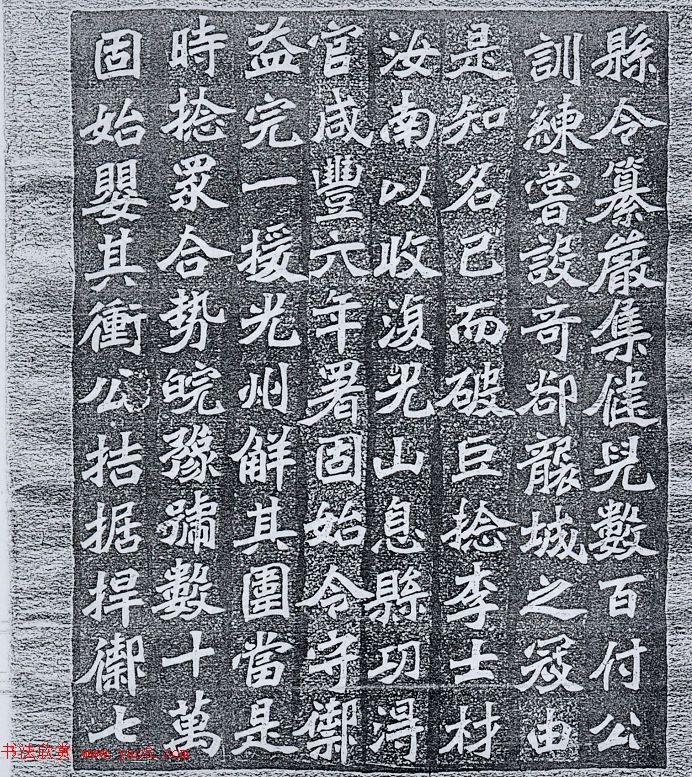 縣令纂嚴集健兒數百付公
訓練嘗設奇卻襲城之寇由
是知名已而破巨捻李士材
汝南以收復光山息縣功得
官咸豐六年署固始令守禦
益完一援光州解其圍當是
時捻眾合势皖豫號數十萬
固始嬰其衝公拮据捍禦七
书法欣赏 www.yac8.com